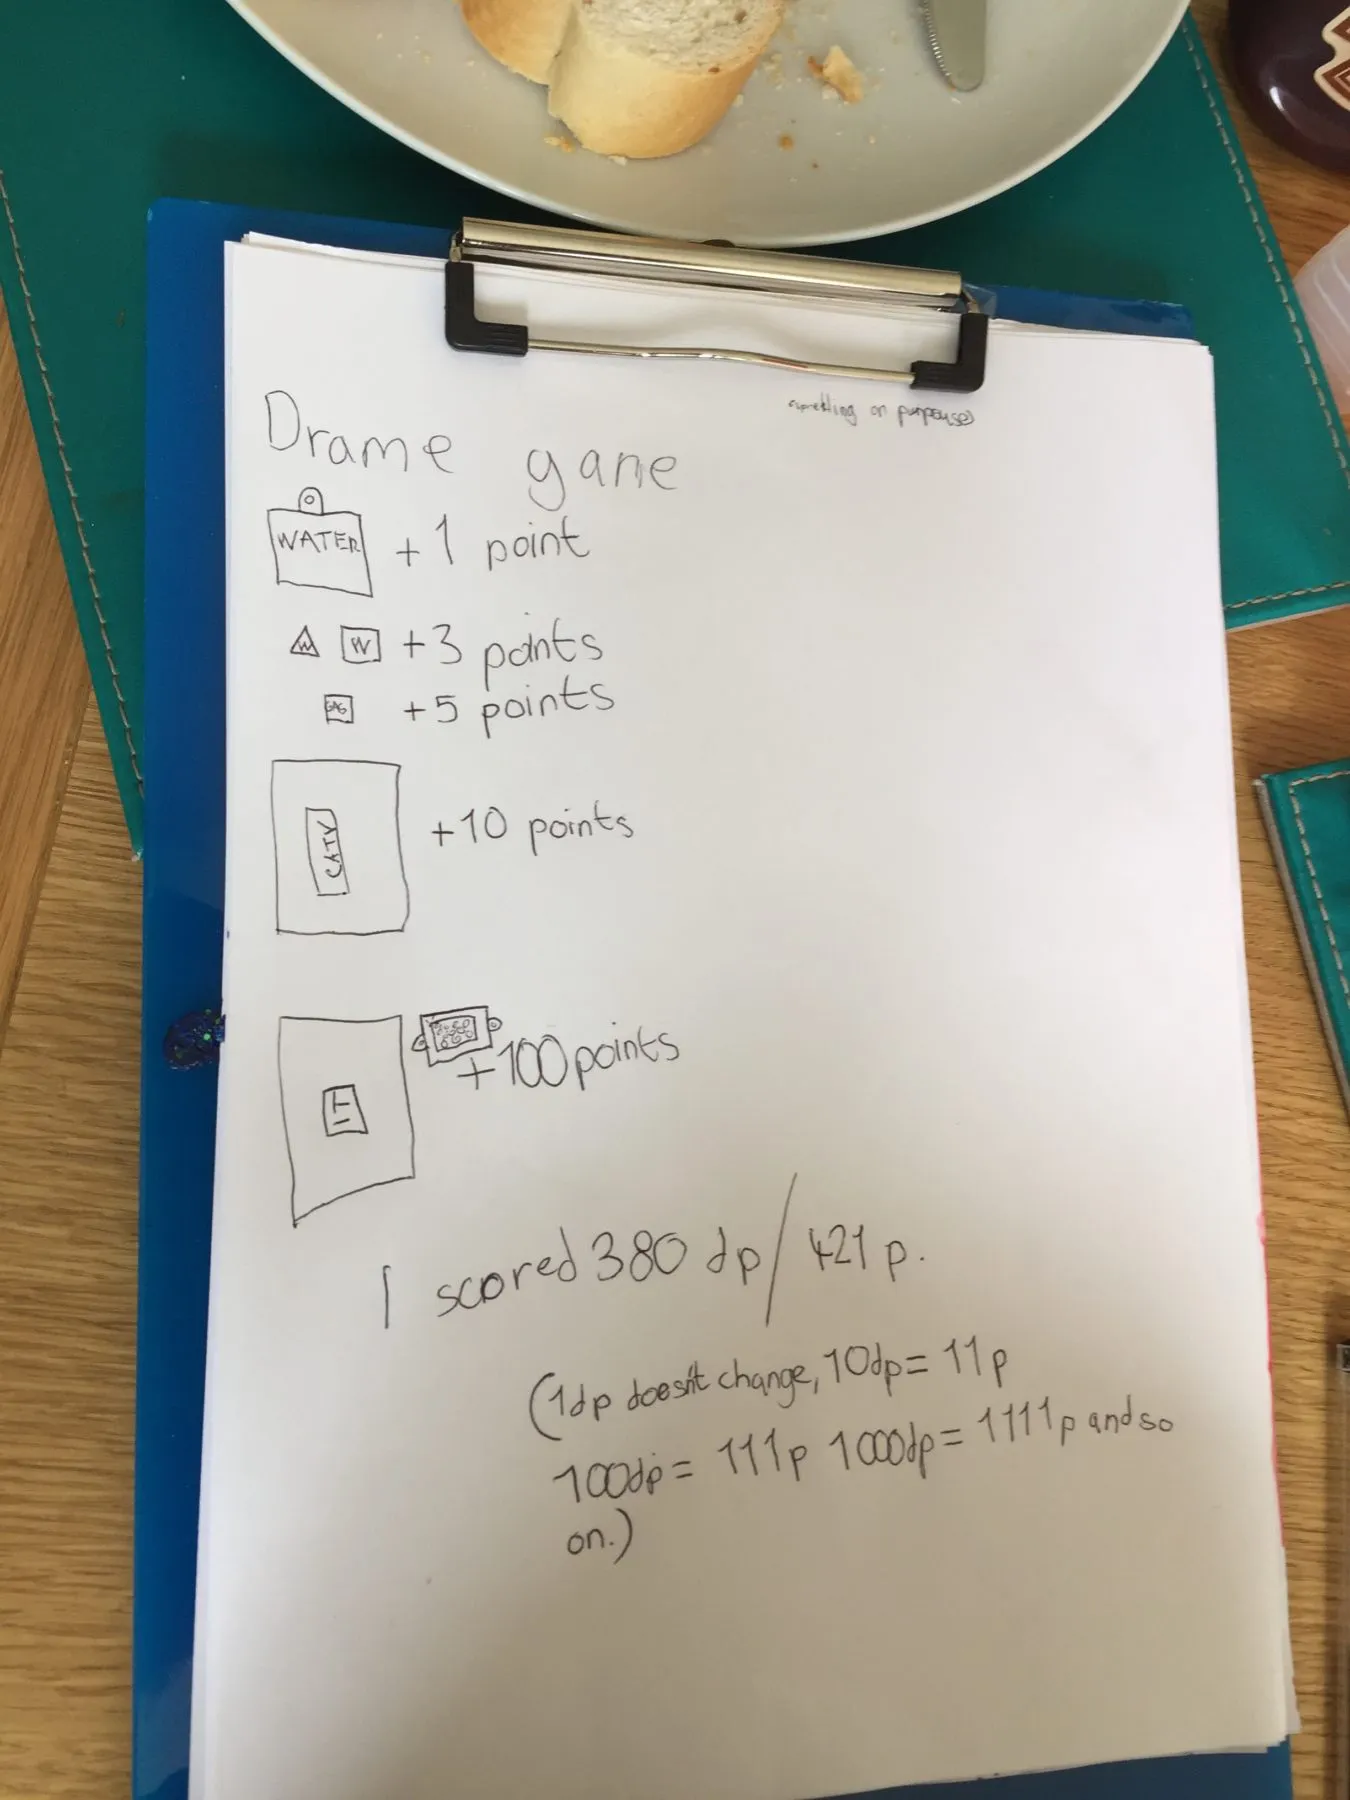 (speelling on purpouse)
Drame game
WATER +1 point
W W +3 points
GAS +5 points
CATV +10 points
+100 points
I scored 380 dp/421 p.
(1dp doesn't change, 10dp= 11p
100dp= 111p 1000dp= 1111p and so
on.)